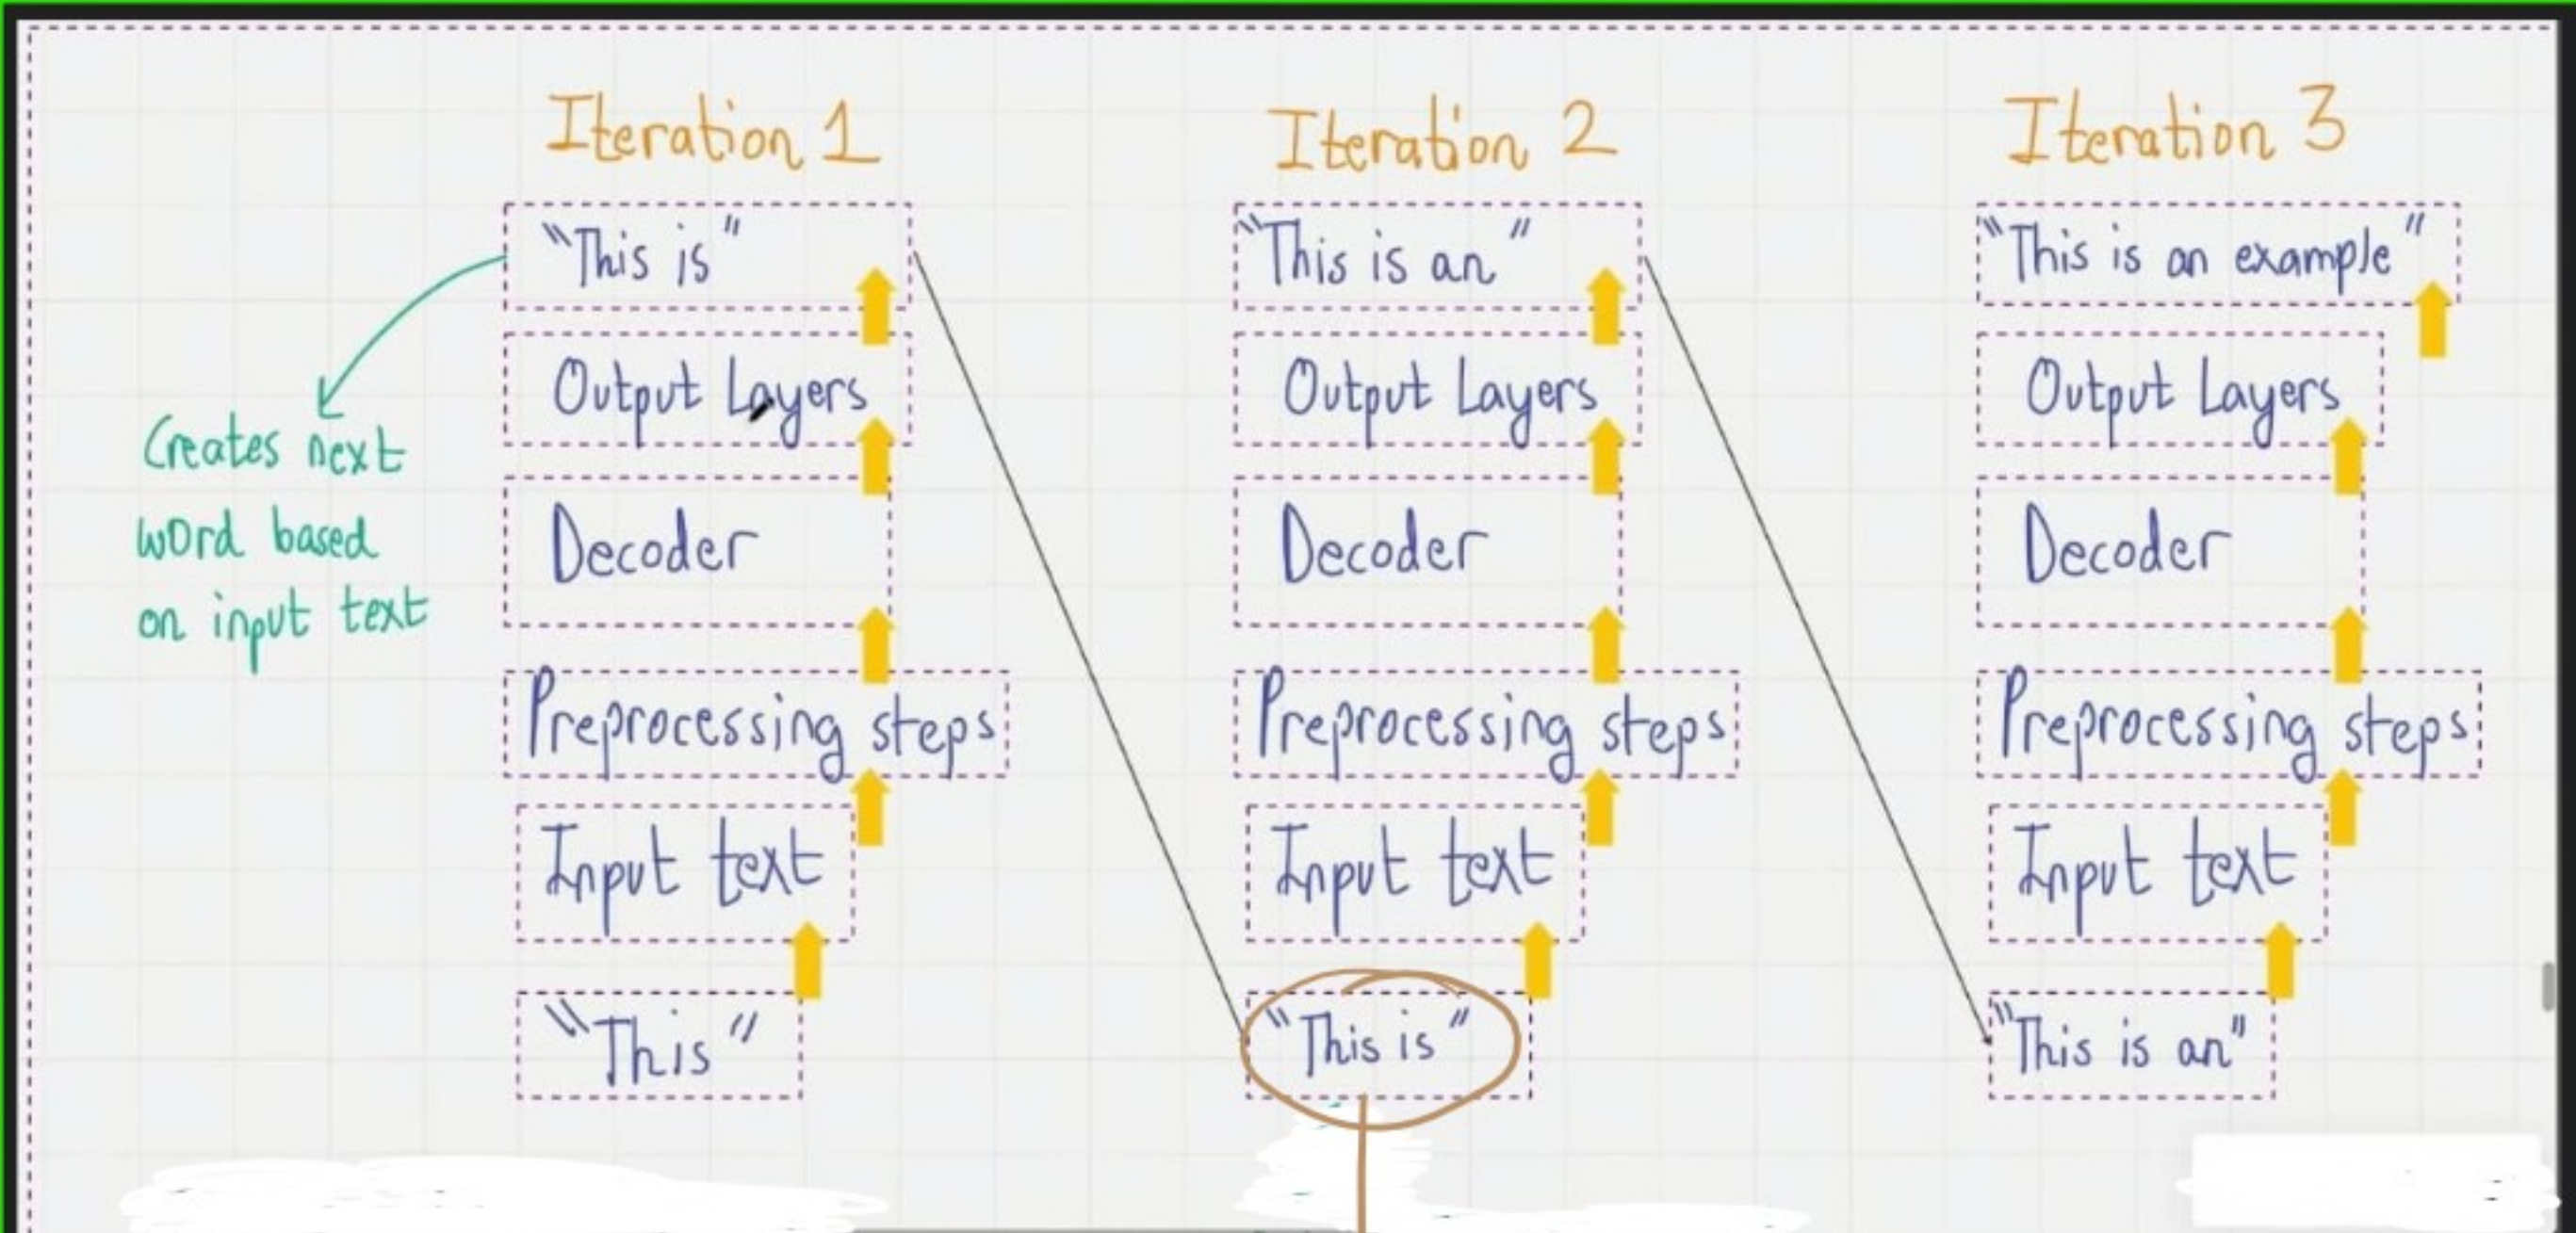 Iteration 1
"This is"
Output Layers
Decoder
Preprocessing steps
Input text
"This"
Creates next
word based
on input text
Iteration 2
"This is an"
Output Layers
Decoder
Preprocessing steps
Input text
"This is"
Iteration 3
"This is an example"
Output Layers
Decoder
Preprocessing steps
Input text
"This is an"